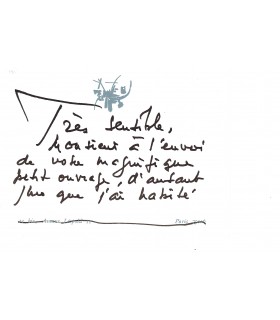 Très sensible,
Monsieur à l'envoi
de votre magnifique
petit ouvrage, d'autant
plus que j'ai habité